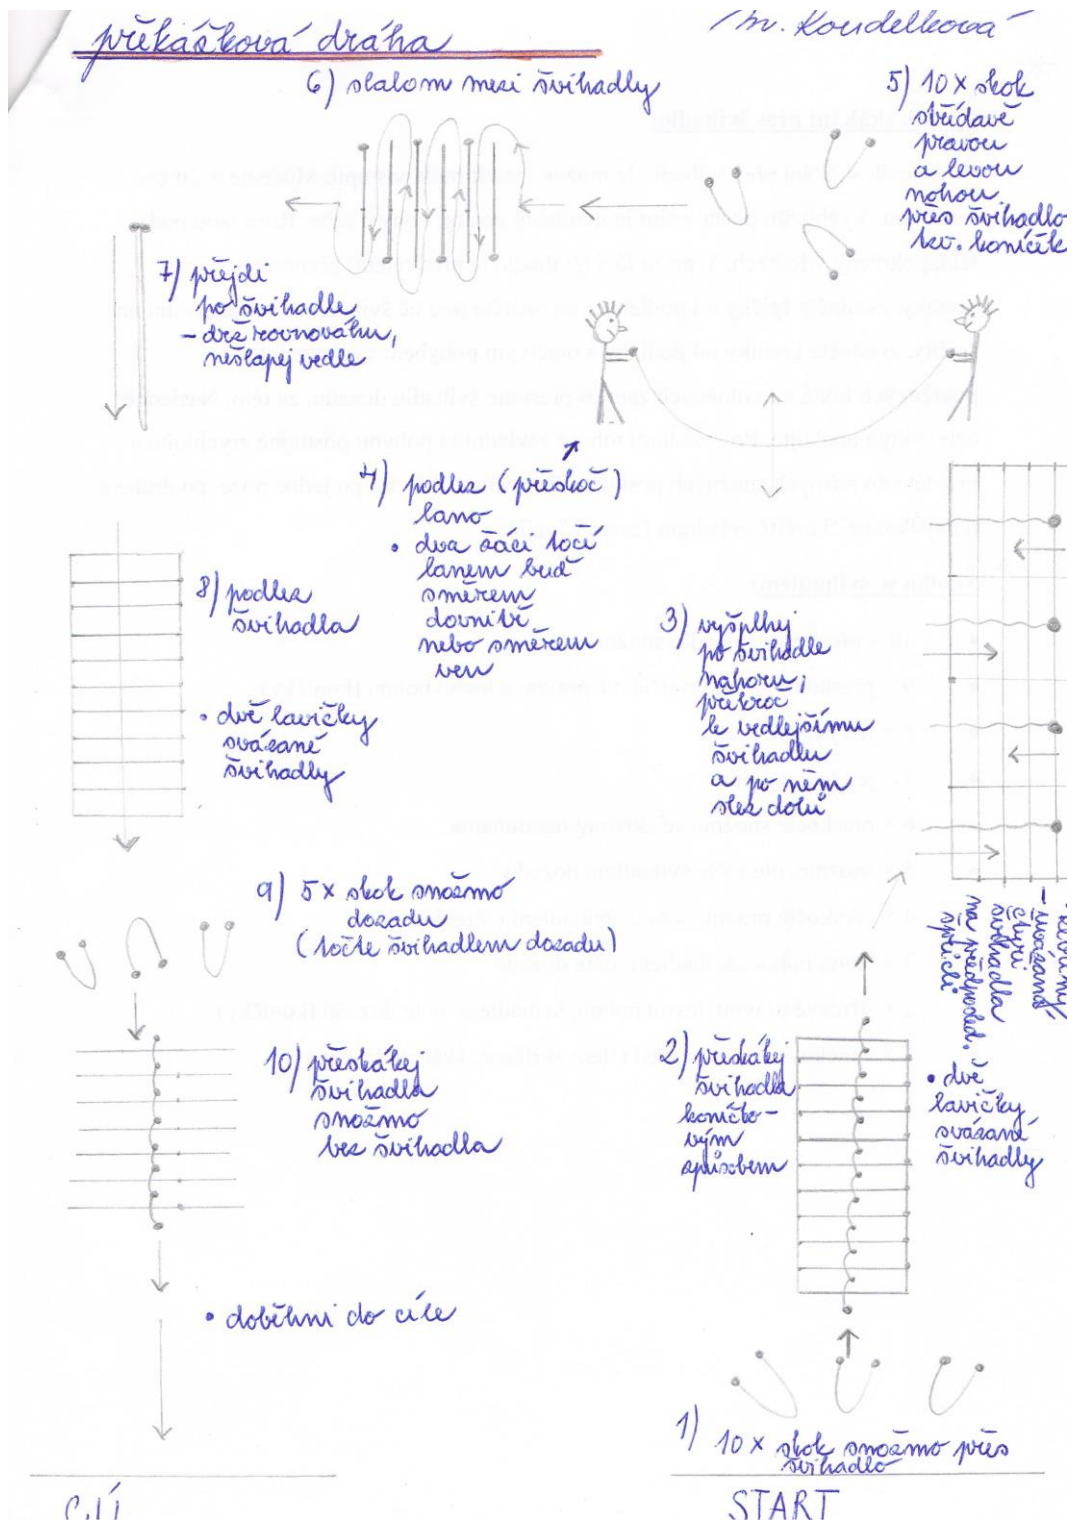 překážková dráha
M. Koudelková
6) slalom mezi švihadly
5) 10 x skok
střídavě
pravou
a levou
nohou
přes švihadlo
tzv. koníček
7) přejdi
po švihadle
- drž rovnováhu,
nešlapej vedle
4) podlez (přeskoč)
lano
• dva žáci točí
lanem buď
směrem
dovnitř
nebo směrem
ven
8) podlez
švihadla
• dvě lavičky
svázané
švihadly
3) vyšplhej
po švihadle
nahoru;
překroč
k vedlejšímu
švihadlu
a po něm
slez dolů
- uvázané
čtyři
švihadla
na předposled.
špricli
9) 5 x skok snožmo
dozadu
(točte švihadlem dozadu)
10) přeskákej
švihadla
snožmo
bez švihadla
2) přeskákej
švihadla
koníčko-
vým
způsobem
• dvě
lavičky
svázané
švihadly
• doběhni do cíle
1) 10 x skok snožmo přes
švihadlo
CÍL
START